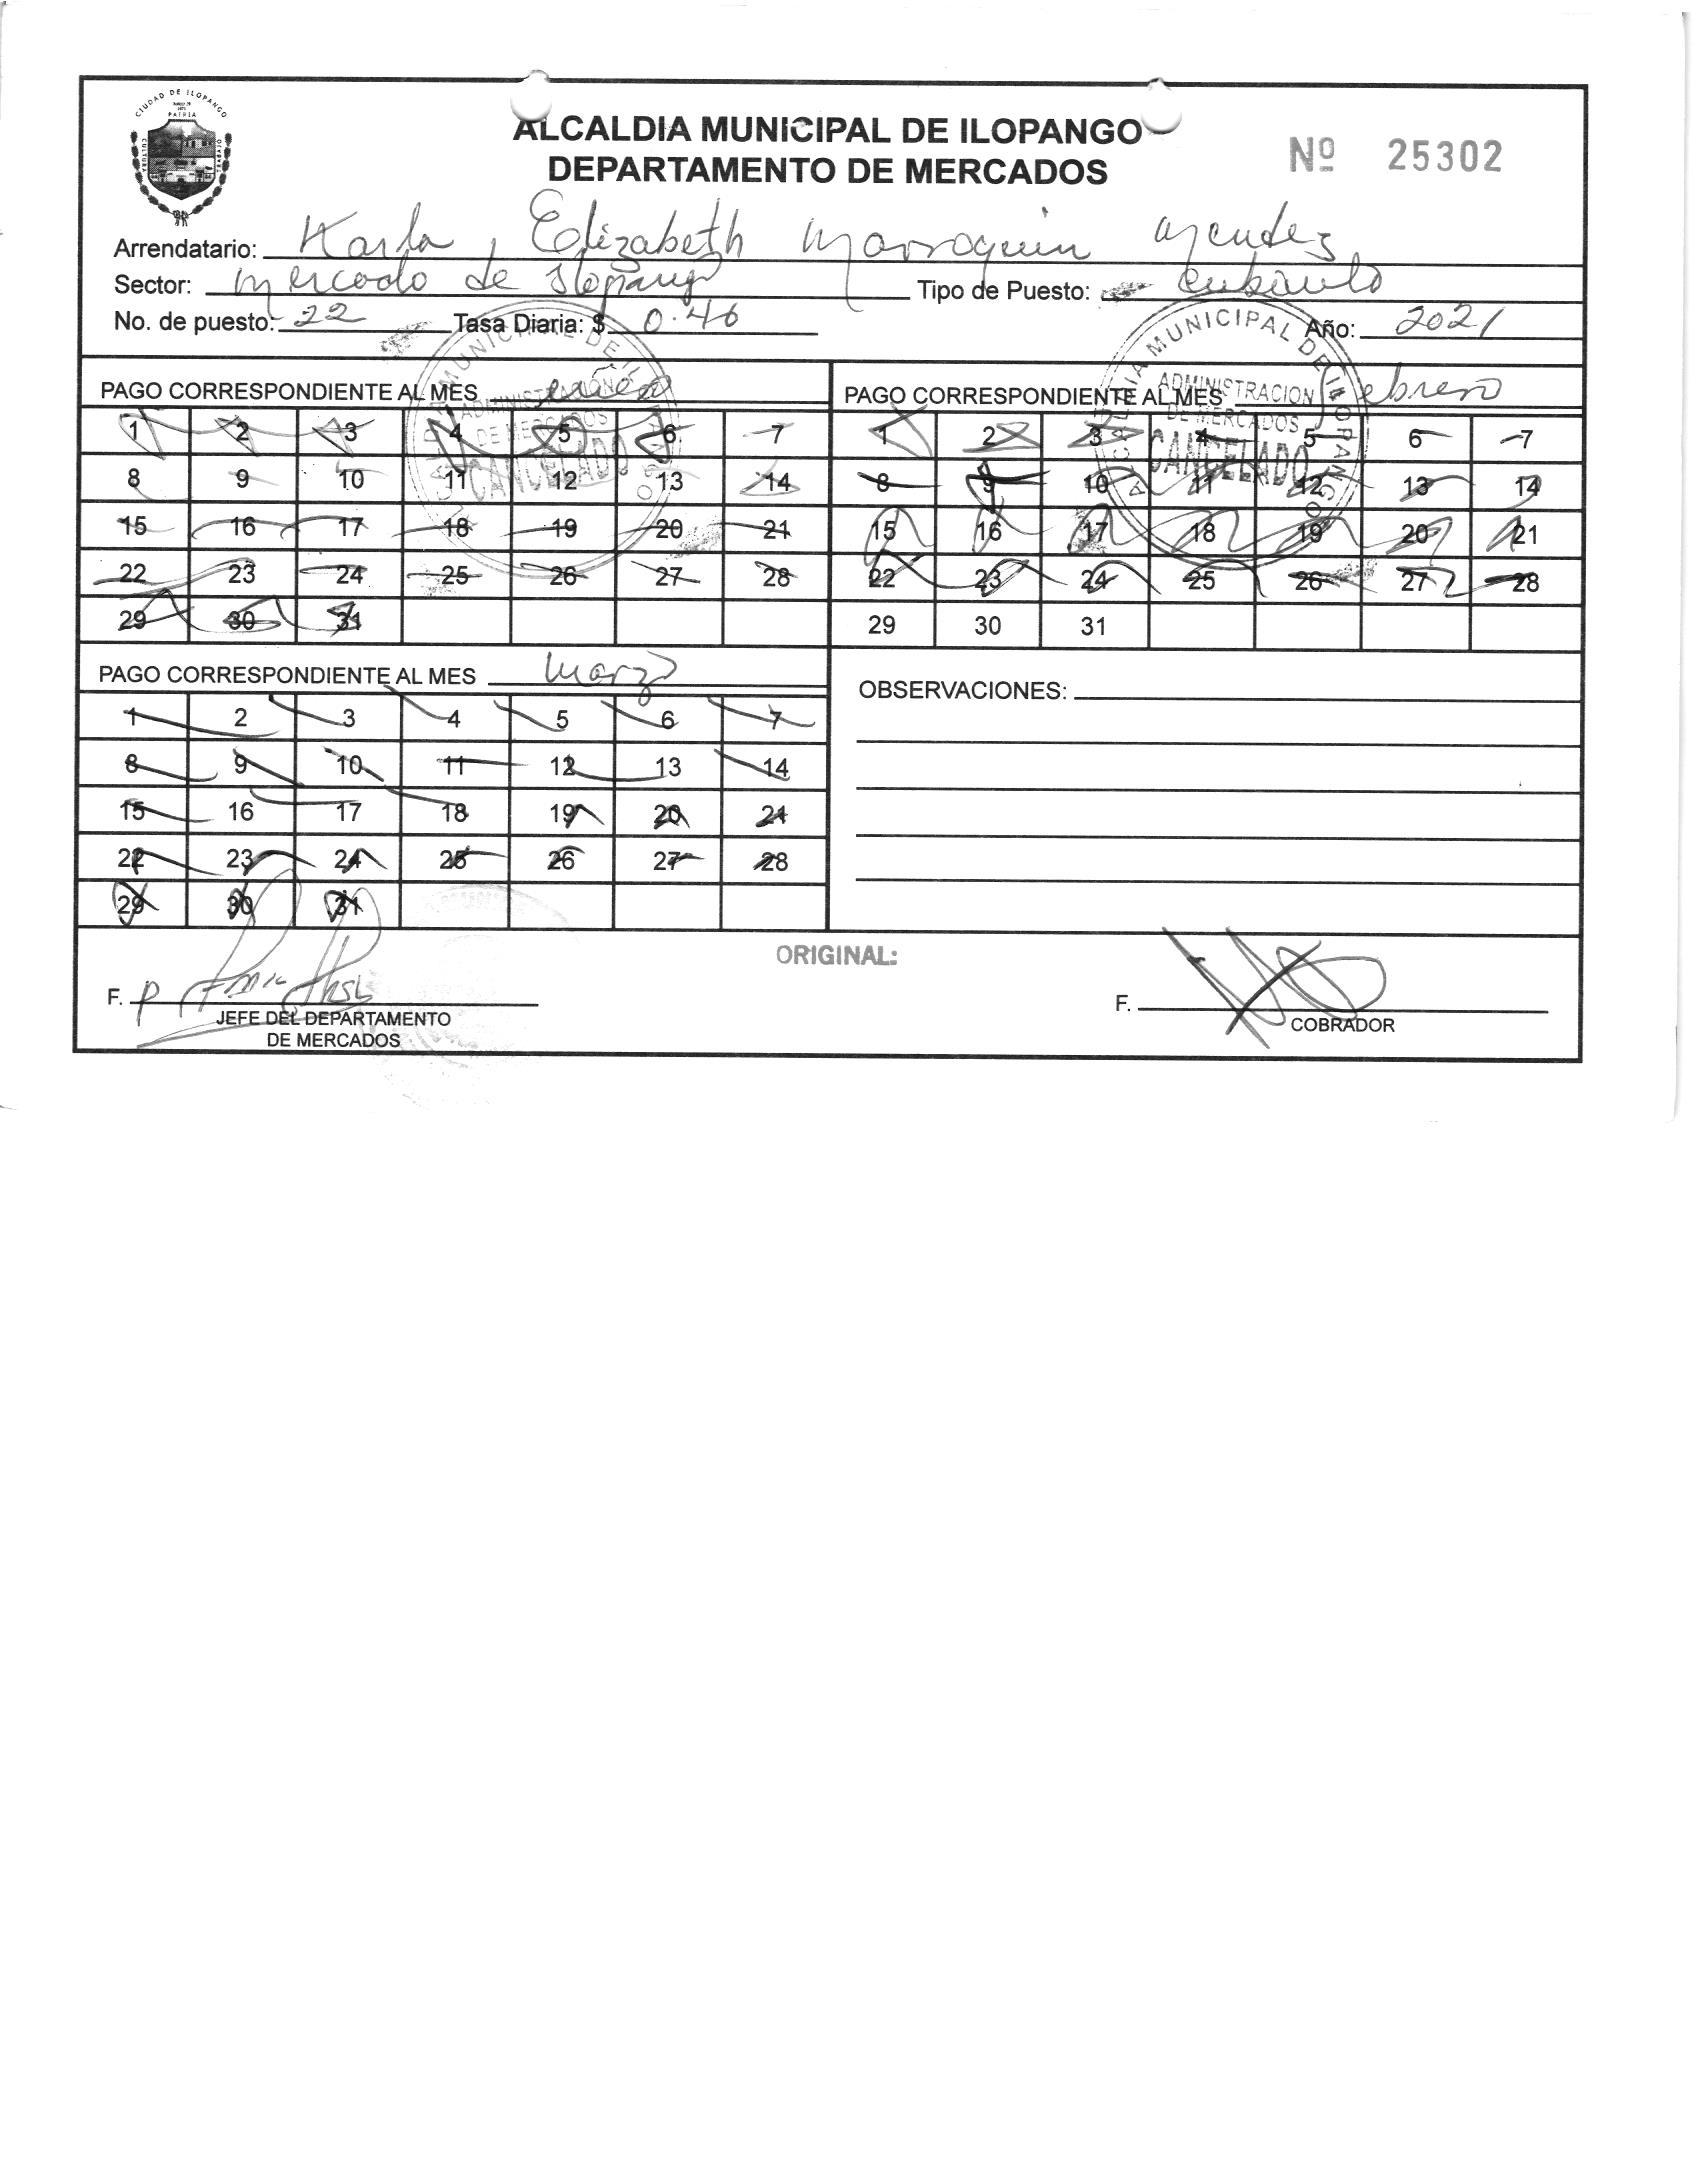 CIUDAD DE ILOPANGO
PATRIA
CULTURA
ALCALDIA MUNICIPAL DE ILOPANGO
DEPARTAMENTO DE MERCADOS
Nº 25302
Arrendatario: Karla Elizabeth Marroquin Mendez
Sector: Mercado de Ilopango Tipo de Puesto:
No. de puesto: 22 Tasa Diaria: $ 0.46 Año: 2021
PAGO CORRESPONDIENTE AL MES enero
1 2 3 4 5 6 7
8 9 10 11 12 13 14
15 16 17 18 19 20 21
22 23 24 25 26 27 28
29 30 31
ADMINISTRACION
DE MERCADOS
CANCELADO
PAGO CORRESPONDIENTE AL MES Febrero
1 2 3 4 5 6 7
8 9 10 11 12 13 14
15 16 17 18 19 20 21
22 23 24 25 26 27 28
29 30 31
ALCALDIA MUNICIPAL DE ILOPANGO
ADMINISTRACION
DE MERCADOS
CANCELADO
PAGO CORRESPONDIENTE AL MES Marzo
1 2 3 4 5 6 7
8 9 10 11 12 13 14
15 16 17 18 19 20 21
22 23 24 25 26 27 28
29 30 31
OBSERVACIONES:
ORIGINAL:
F.
JEFE DEL DEPARTAMENTO
DE MERCADOS
F.
COBRADOR